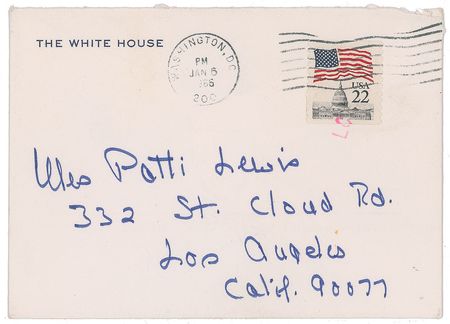 THE WHITE HOUSE
WASHINGTON, DC
PM
JAN 6
USA
22
Mrs Patti Lewis
332 St. Cloud Rd.
Los Angeles
Calif. 90077